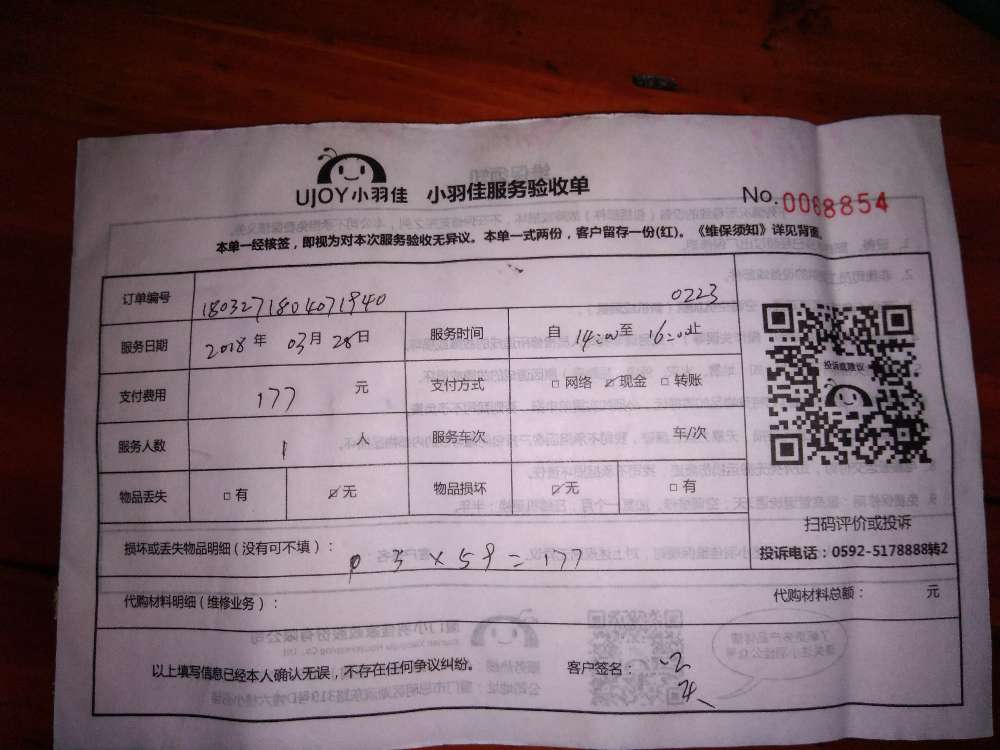 UJOY小羽佳 小羽佳服务验收单 No.0068854
本单一经核签，即视为对本次服务验收无异议。本单一式两份，客户留存一份(红)。《维保须知》详见背面
订单编号 1803271804071940 0223
服务日期 2018年 03月 28日 服务时间 自 14:00至 16:00止
支付费用 177 元 支付方式 □网络 ☑现金 □转账
服务人数 1 人 服务车次 车/次
物品丢失 □有 ☑无 物品损坏 ☑无 □有
投诉或建议
扫码评价或投诉
投诉电话：0592-5178888转2
损坏或丢失物品明细(没有可不填)：
3×59=177
代购材料明细(维修业务)： 代购材料总额： 元
以上填写信息已经本人确认无误，不存在任何争议纠纷。 客户签名：